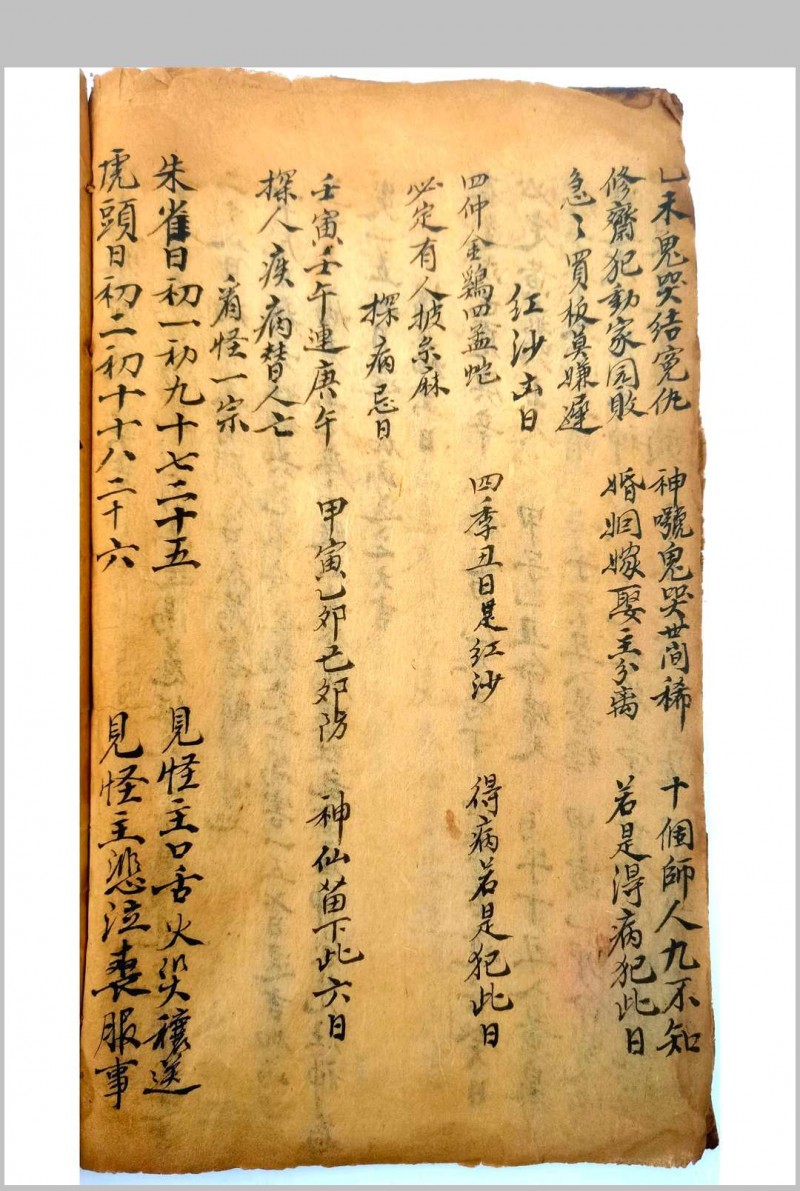 乚未鬼哭结寃仇 神嚎鬼哭世间稀 十個師人九不知
修齋犯動家园敗 婚姻嫁娶主分离 若是得病犯此日
急々買板莫嫌遲
紅沙凶日
四仲金鷄四孟蛇 四季丑日是紅沙 得病若是犯此日
必定有人披糸麻
探病忌日
壬寅壬午連庚午 甲寅乙卯己卯防 神仙留下此六日
探人疾病替人亡
看怪一宗
朱雀日初一初九十七二十五 見怪主口舌火災穰送
虎頭日初二初十十八二十六 見怪主悲泣丧服事